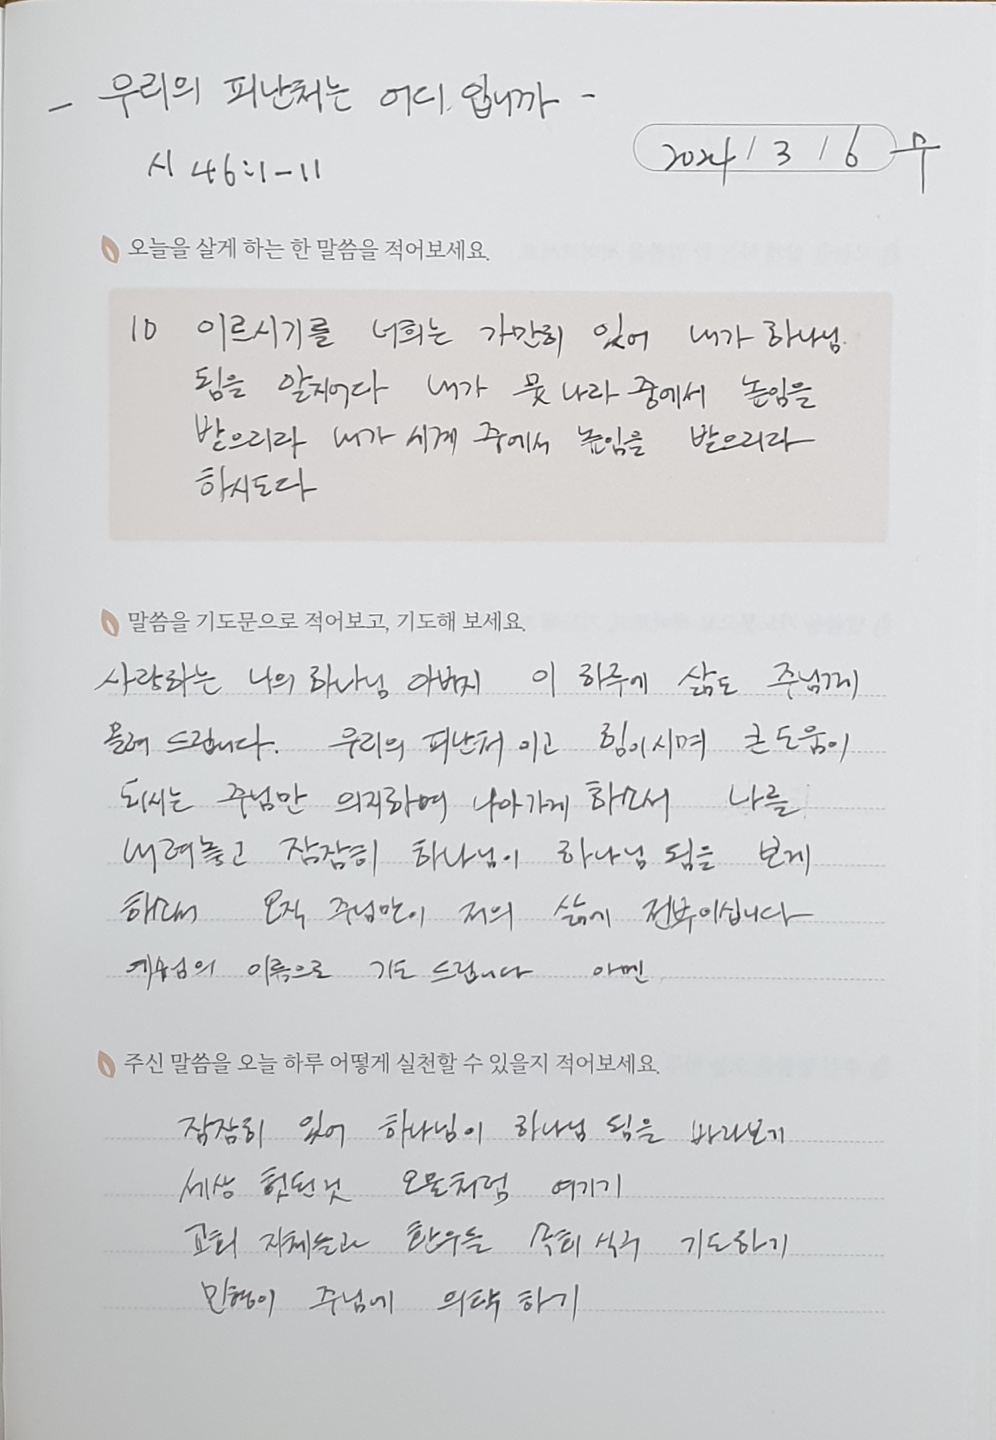 - 우리의 피난처는 어디 입니까 -
시 46:1-11
2024 / 3 / 6 수
오늘을 살게 하는 한 말씀을 적어보세요.
10 이르시기를 너희는 가만히 있어 내가 하나님
됨을 알지어다 내가 뭇 나라 중에서 높임을
받으리라 내가 세계 중에서 높임을 받으리라
하시도다
말씀을 기도문으로 적어보고, 기도해 보세요.
사랑하는 나의 하나님 아버지 이 하루에 삶도 주님께
올려 드립니다. 우리의 피난처 이고 힘이시며 큰 도움이
되시는 주님만 의지하여 나아가게 하소서 나를
내려놓고 잠잠히 하나님이 하나님 됨을 보게
하소서 오직 주님만이 저의 삶에 전부이십니다
예수님의 이름으로 기도 드립니다 아멘
주신 말씀을 오늘 하루 어떻게 실천할 수 있을지 적어보세요.
잠잠히 있어 하나님이 하나님 됨을 바라보기
세상 헛된것 오물처럼 여기기
교회 지체들과 환우들 국회 식구 기도하기
민형이 주님께 의탁 하기